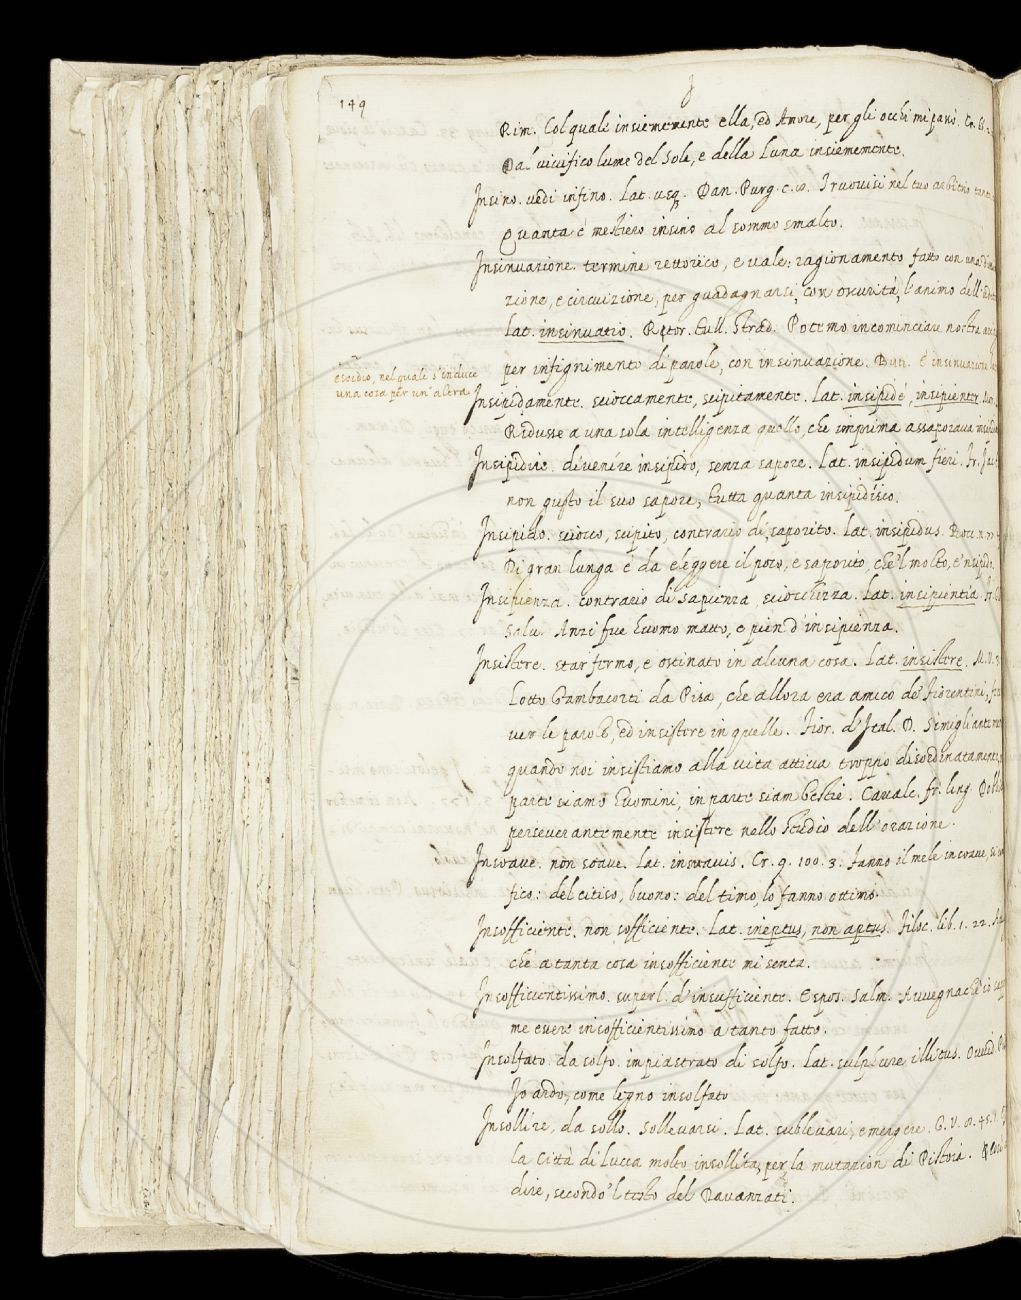 149
J
Rim. Col quale insiememente ella, ed Amore, per gli occhi mi pavò. Cr.
Dal vivifico lume del Sole, e della Luna insiememente.
Insino. vedi infino. Lat. usq. Dan. Purg. c. 8. Truovisi nel tuo arbitrio
Quanta è mestiero insino al sommo smalto.
Insinuazione. termine rettorico, e vale: ragionamento fatto con una
zione, e circuizione, per guadagnarsi, con oscurità, l'animo dell'
Lat. insinuatio. Retor. Tull. Strad. Potemo incominciare nostra
per infignimento di parole, con insinuazione. But. È insinuazione
esordio, nel quale s'induce
una cosa per un'altra
Insipidamente. scioccamente, scipitamente. Lat. insipidè, insipienter.
Ridusse a una sola intelligenza quello, che imprima assaporava
Insipidire. divenire insipido, senza sapore. Lat. insipidum fieri. Fr.
non gusto il suo sapore, tutta quanta insipidisco.
Insipido. sciocco, scipito, contrario di saporito. Lat. insipidus. Bocc. n.
Di gran lunga è da eleggere il poco, e saporito, che'l molto, e'nsipido.
Insipienza. contrario di sapienza, sciocchezza. Lat. insipientia.
Salu. Anzi fue huomo matto, e pien d'insipienza.
Insistere. star fermo, e ostinato in alcuna cosa. Lat. insistere. M. V. 3
Lotto Gambacorti da Pisa, che allora era amico de' Fiorentini,
ver le parole, ed insistere in quelle. Fior. d'Ital. D. Simigliante
quando noi insistiamo alla vita attiva troppo disordinatamente,
parte siamo huomini, in parte siam bestie. Cavalc. fr. ling.
perseverantemente insistere nello studio dell'orazione.
Insoave. non soave. Lat. insuavis. Cr. 9. 100. 3. Fanno il mele insoave,
fico: del citiso, buono: del timo, lo fanno ottimo.
Insofficiente. non sofficiente. Lat. ineptus, non aptus. Filoc. lib. 1. 22.
che a tanta cosa insofficiente mi senta.
Insofficientissimo. superl. d'insufficiente. Espos. Salm. Avvegnachè
me essere insofficientissimo a tanto fatto.
Insolfato. da solfo. impiastrato di solfo. Lat. sulphure illitus. Ovvid.
Io ardo, come legno insolfato
Insollire, da sollo. Sollevarsi. Lat. sublevari, emergere. G. V. 8. 45. 1.
la Città di Lucca molto insollita, per la mutazion di Pistoia.
dire, secondo'l testo del Davanzati.